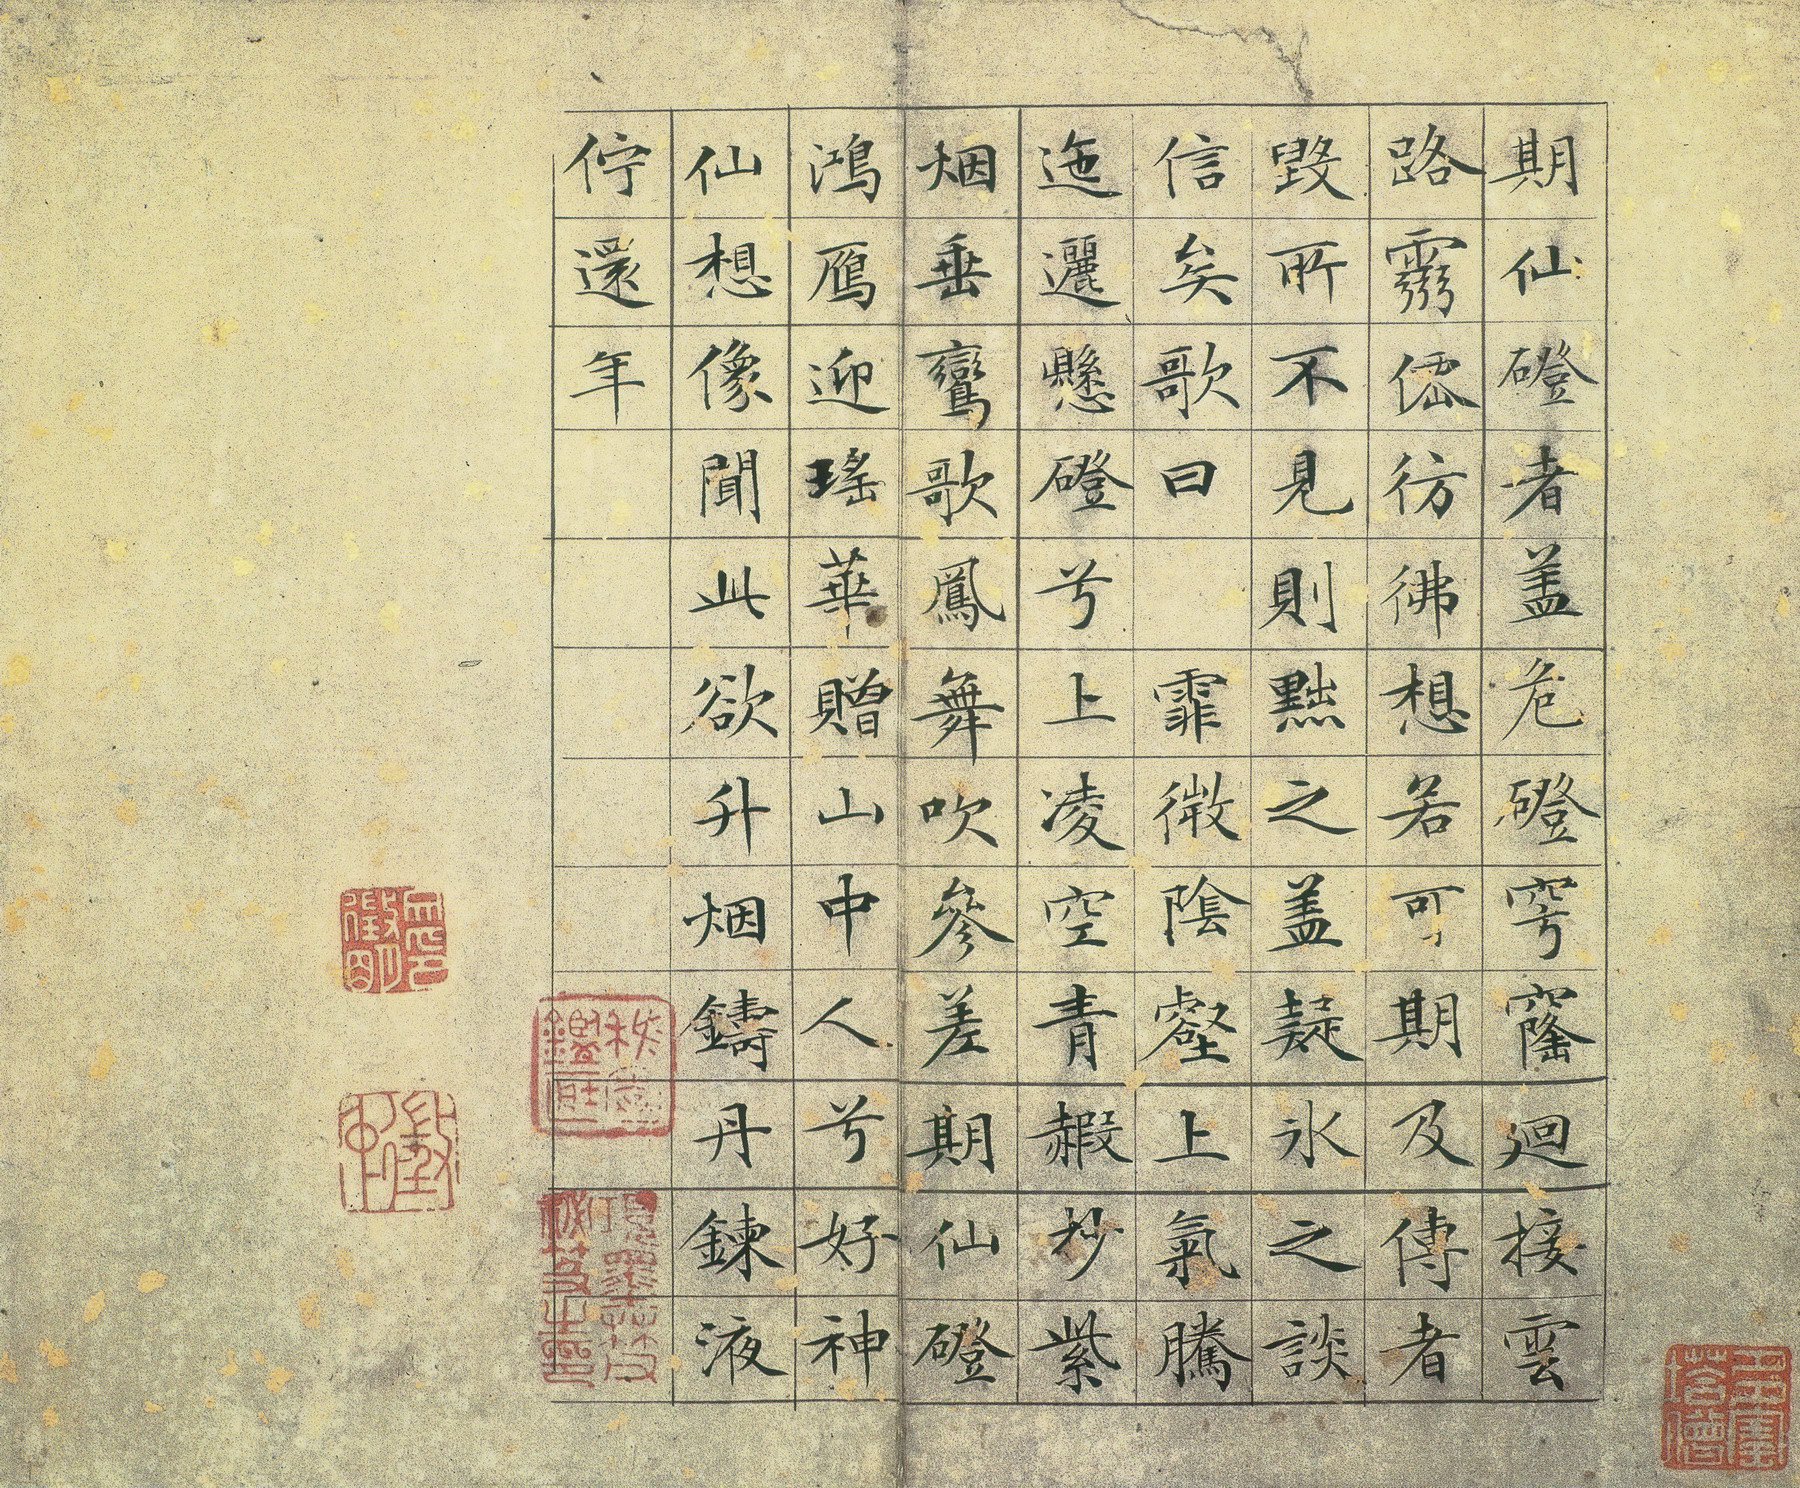 期仙磴者盖危磴穹窿迴接雲
路靈僊彷彿想若可期及傳者
毀所不見則黜之盖疑氷之談
信矣歌曰 霏微陰壑上氣騰
迤邐懸磴兮上凌空青赮杪紫
烟垂鸞歌鳳舞吹參差期仙磴
鴻鴈迎瑤華贈山中人兮好神
仙想像聞此欲升烟鑄丹鍊液
佇還年
項墨林父祕笈之印